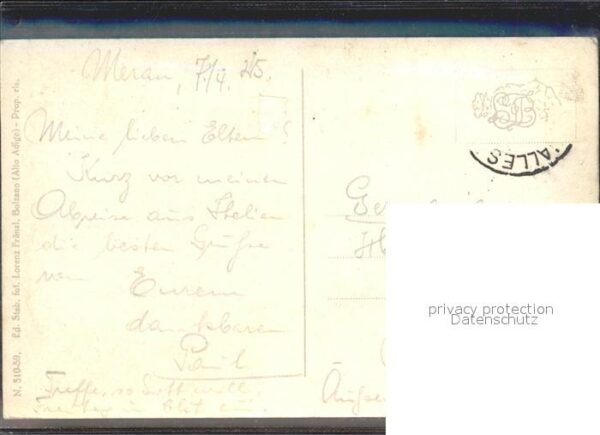 Meran, 7./4. 25.
Meine lieben Eltern!
Kurz vor meiner
Abreise aus Italien
die besten Grüße
von
Eurem
dankbaren
Paul
Treffe, so Gott will,
Freitag in
ALLES
privacy protection
Datenschutz
N. 510-59. Ed. Stab. fot. Lorenz Fränzl, Bolzano (Alto Adige) - Prop. ris.